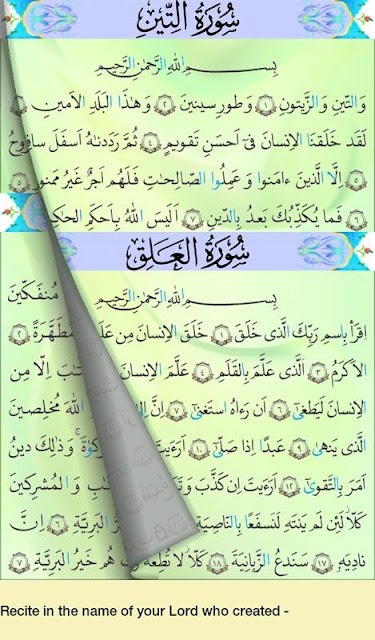 سُورَةُ التِّينِ
بِسْمِ اللهِ الرَّحْمٰنِ الرَّحِيمِ
وَالتِّينِ وَالزَّيْتُونِ ١ وَطُورِ سِينِينَ ٢ وَهٰذَا الْبَلَدِ الْاَمِينِ
لَقَدْ خَلَقْنَا الْاِنْسَانَ فِىٓ اَحْسَنِ تَقْوِيمٍ ٤ ثُمَّ رَدَدْنَاهُ اَسْفَلَ
اِلَّا الَّذِينَ ءَامَنُوا وَعَمِلُوا الصَّالِحَاتِ فَلَهُمْ اَجْرٌ غَيْرُ ٥
٦ فَمَا يُكَذِّبُكَ بَعْدُ بِالدِّينِ ٧ اَلَيْسَ اللهُ بِاَحْكَمِ
سُورَةُ الْعَلَقِ
بِسْمِ اللهِ الرَّحْمٰنِ الرَّحِيمِ مُنْفَكِّينَ
اِقْرَأْ بِاسْمِ رَبِّكَ الَّذِى خَلَقَ ١ خَلَقَ الْاِنْسَانَ مِنْ مُطَهَّرَةً ٢
الْاَكْرَمُ ٣ الَّذِى عَلَّمَ بِالْقَلَمِ ٤ عَلَّمَ الْاِنْسَانَ اِلَّا مِنْ
الْاِنْسَانَ لَيَطْغٰى ٦ اَنْ رَءَاهُ اسْتَغْنٰى ٧ اِنَّ اللهَ مُخْلِصِينَ
الَّذِى يَنْهٰى ٩ عَبْدًا اِذَا صَلّٰى ١٠ وَذٰلِكَ دِينُ
اَمَرَ بِالتَّقْوٰى ١٢ اَرَءَيْتَ اِنْ كَذَّبَ وَالْمُشْرِكِينَ
كَلَّا لَئِنْ لَمْ يَنْتَهِ لَنَسْفَعًا بِالنَّاصِيَةِ الْبَرِيَّةِ ٦ اِنَّ
نَادِيَهُ ١٧ سَنَدْعُ الزَّبَانِيَةَ ١٨ كَلَّا لَا تُطِعْهُ هُمْ خَيْرُ الْبَرِيَّةِ ٧
Recite in the name of your Lord who created -